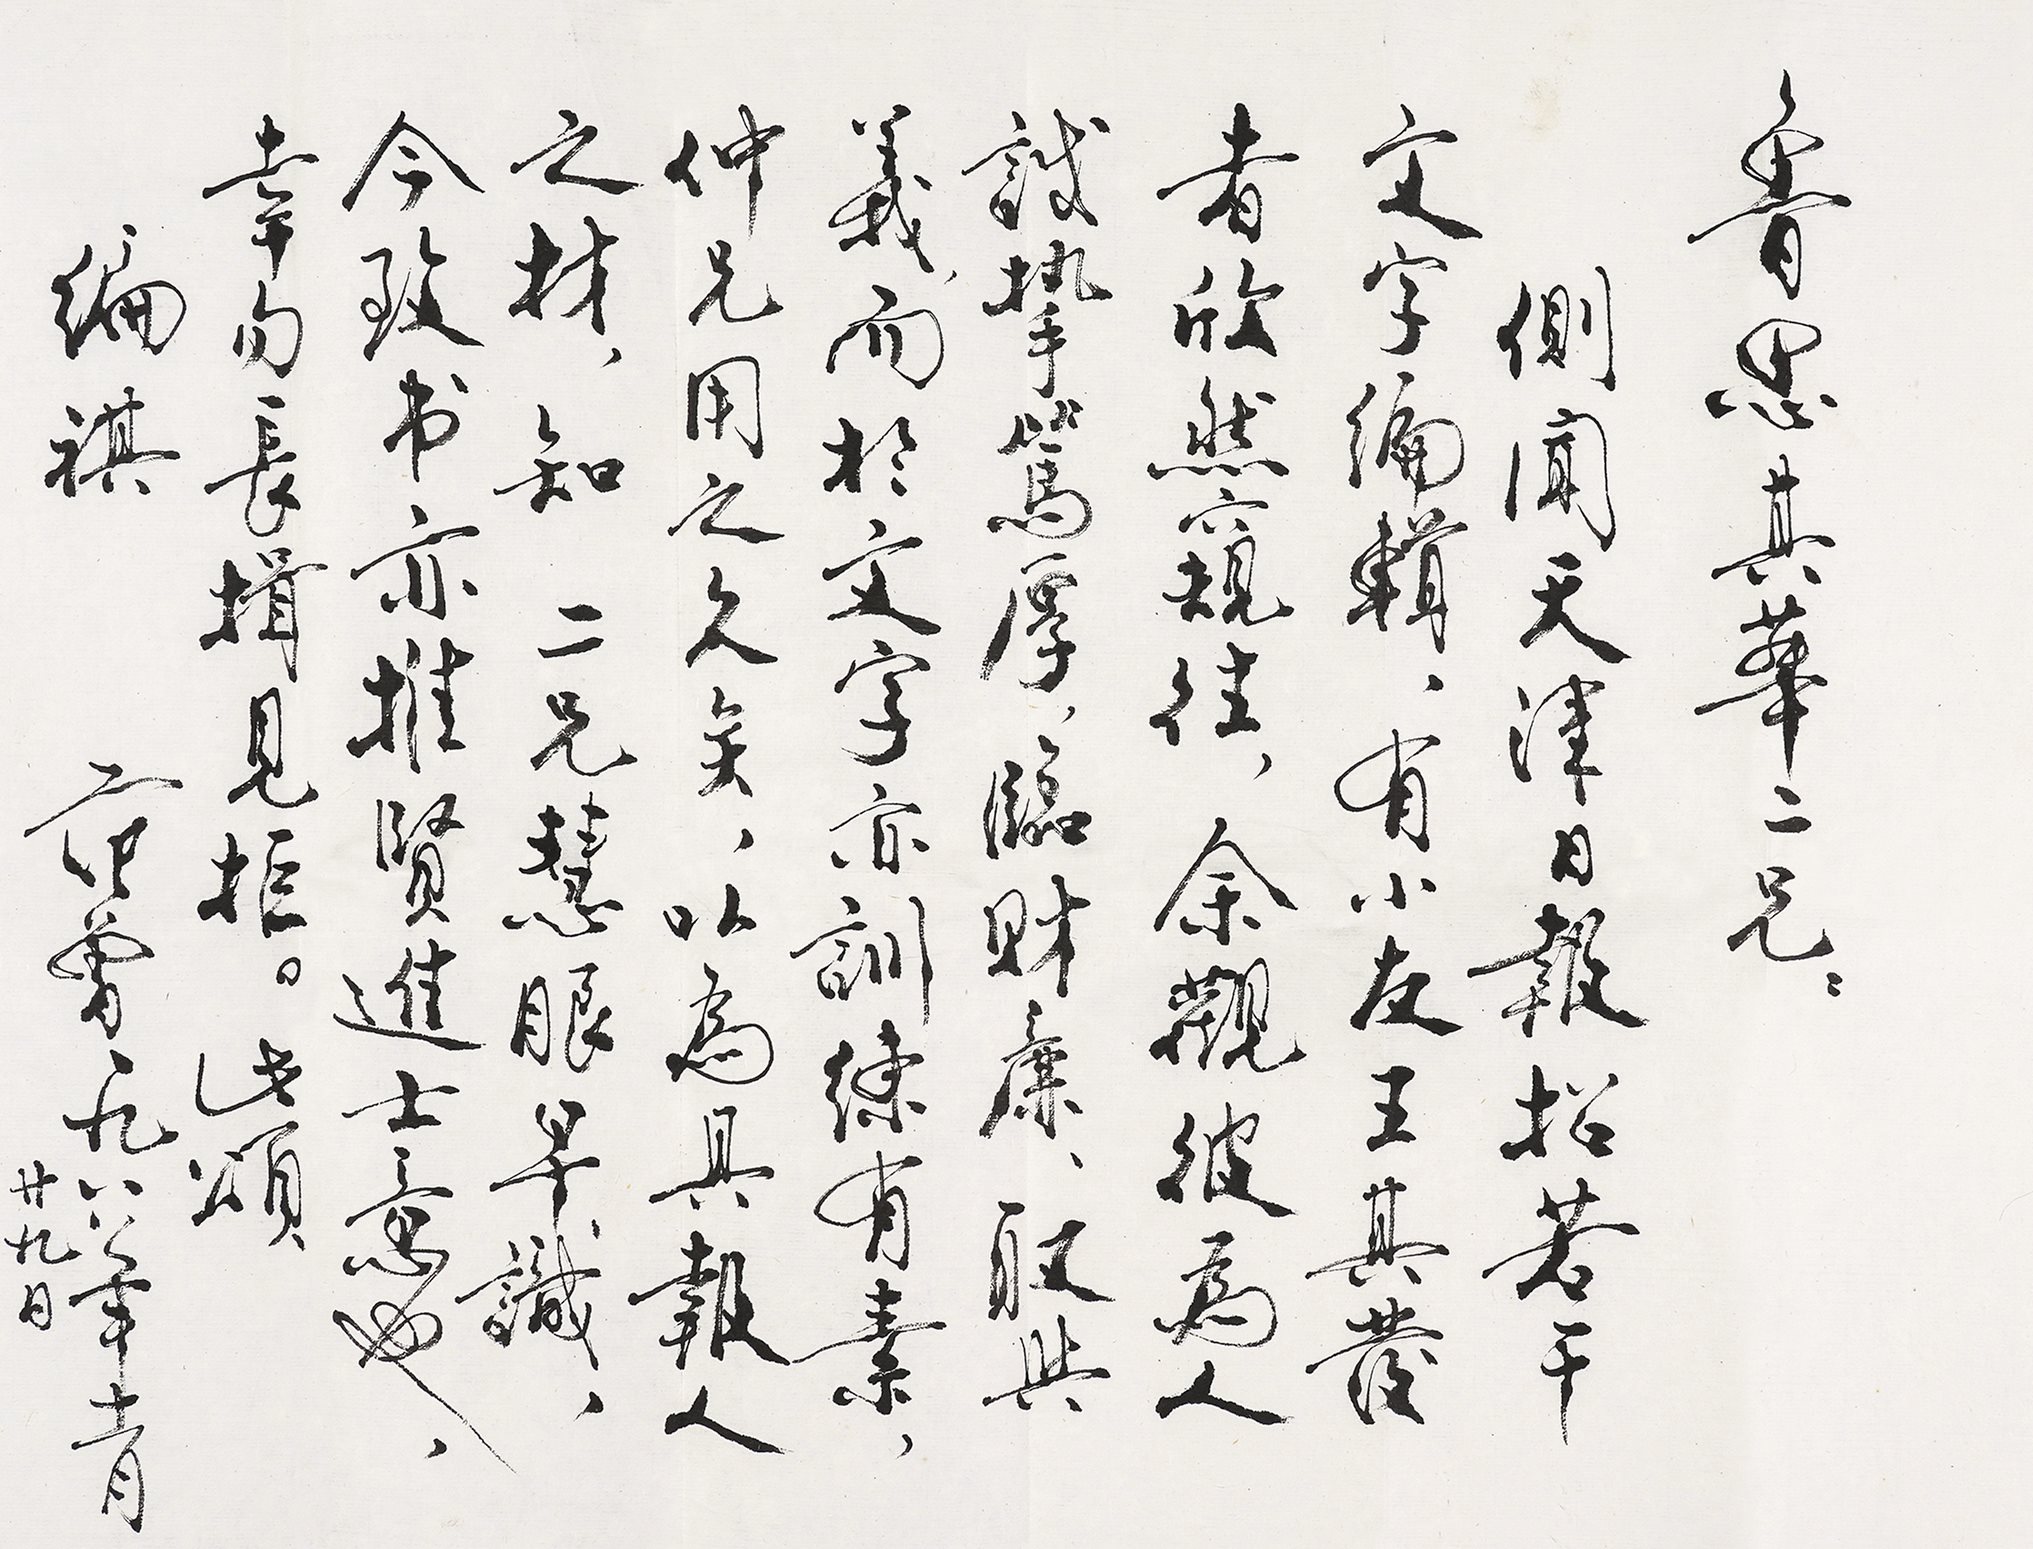 魯思其華二兄：
側聞天津日報招若干
文字編輯，有小友王其發
者欣然窺往，余觀彼為人
誠摯篤厚，臨財廉，取與
義，而於文字亦訓練有素，
仲兄用之久矣，以為具報人
之材，知 二兄慧眼早識，
今致书亦推賢進士意也，
幸勿長揖見拒。此頌
編祺
范曾 九六年十一月
廿九日